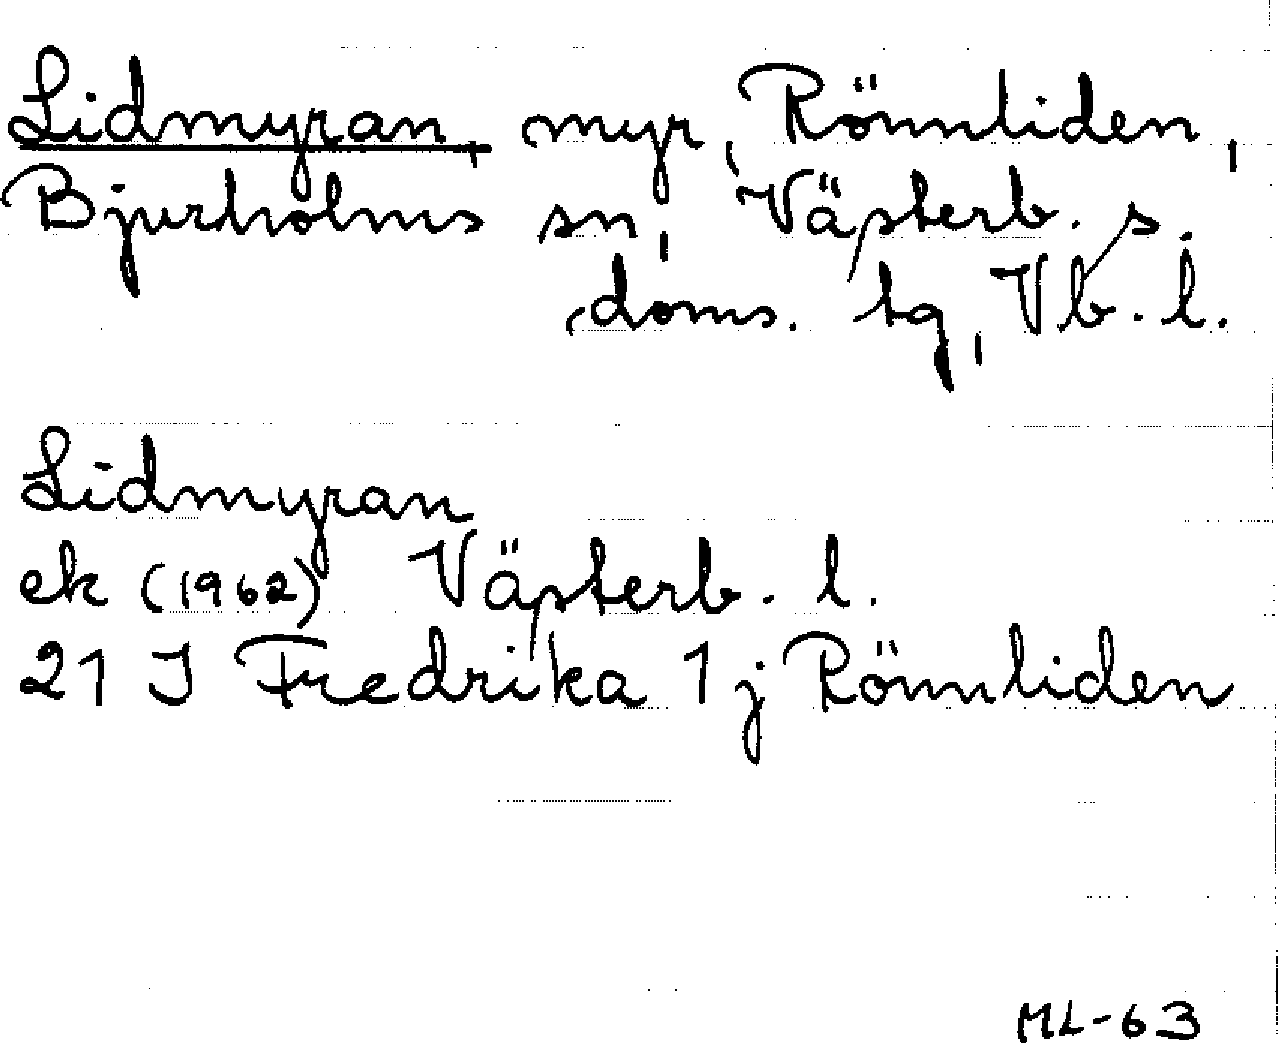 Lidmyran, myr, Rönnliden,
Bjurholms sn, Västerb. s.
doms. tg, Vb. l.
Lidmyran
ek (1962) Västerb. l.
21 J Fredrika 1 j Rönnliden
ML-63